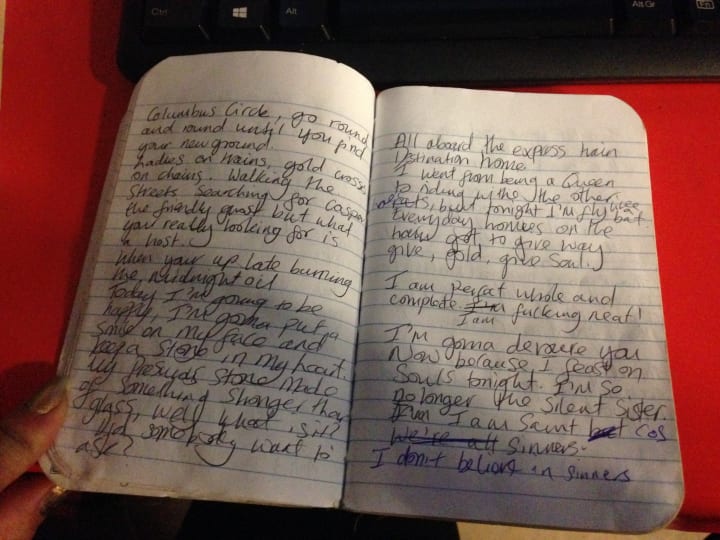 Ctrl
Alt
Alt Gr
Fn
Columbus Circle, go round
and round until you find
your new ground.
Ladies on trains, gold crosses
on chains. Walking the
Streets searching for Casper
the friendly ghost but what
you really looking for is
a host.
When your up late burning
the midnight oil
Today I'm going to be
happy, I'm gonna put a
smile on my face and
keep a Stone in my heart.
My Presious Stone Made
of something stronger than
glass, well what is it?
Did somebody want to
ask?
All aboard the express train
Destination home
I went from being a Queen
to riding with the other
but tonight I'm fly
Everyday homies on the
got to give way
give, gold, give Soul!
I am perfat whole and
complete I'm fucking neat!
I am
I'm gonna devoure you
Now because I feast on
Souls tonight. I'm so
no longer the Silent Sister.
I am Saint but cos
we're all sinners.
I don't believe in sinners